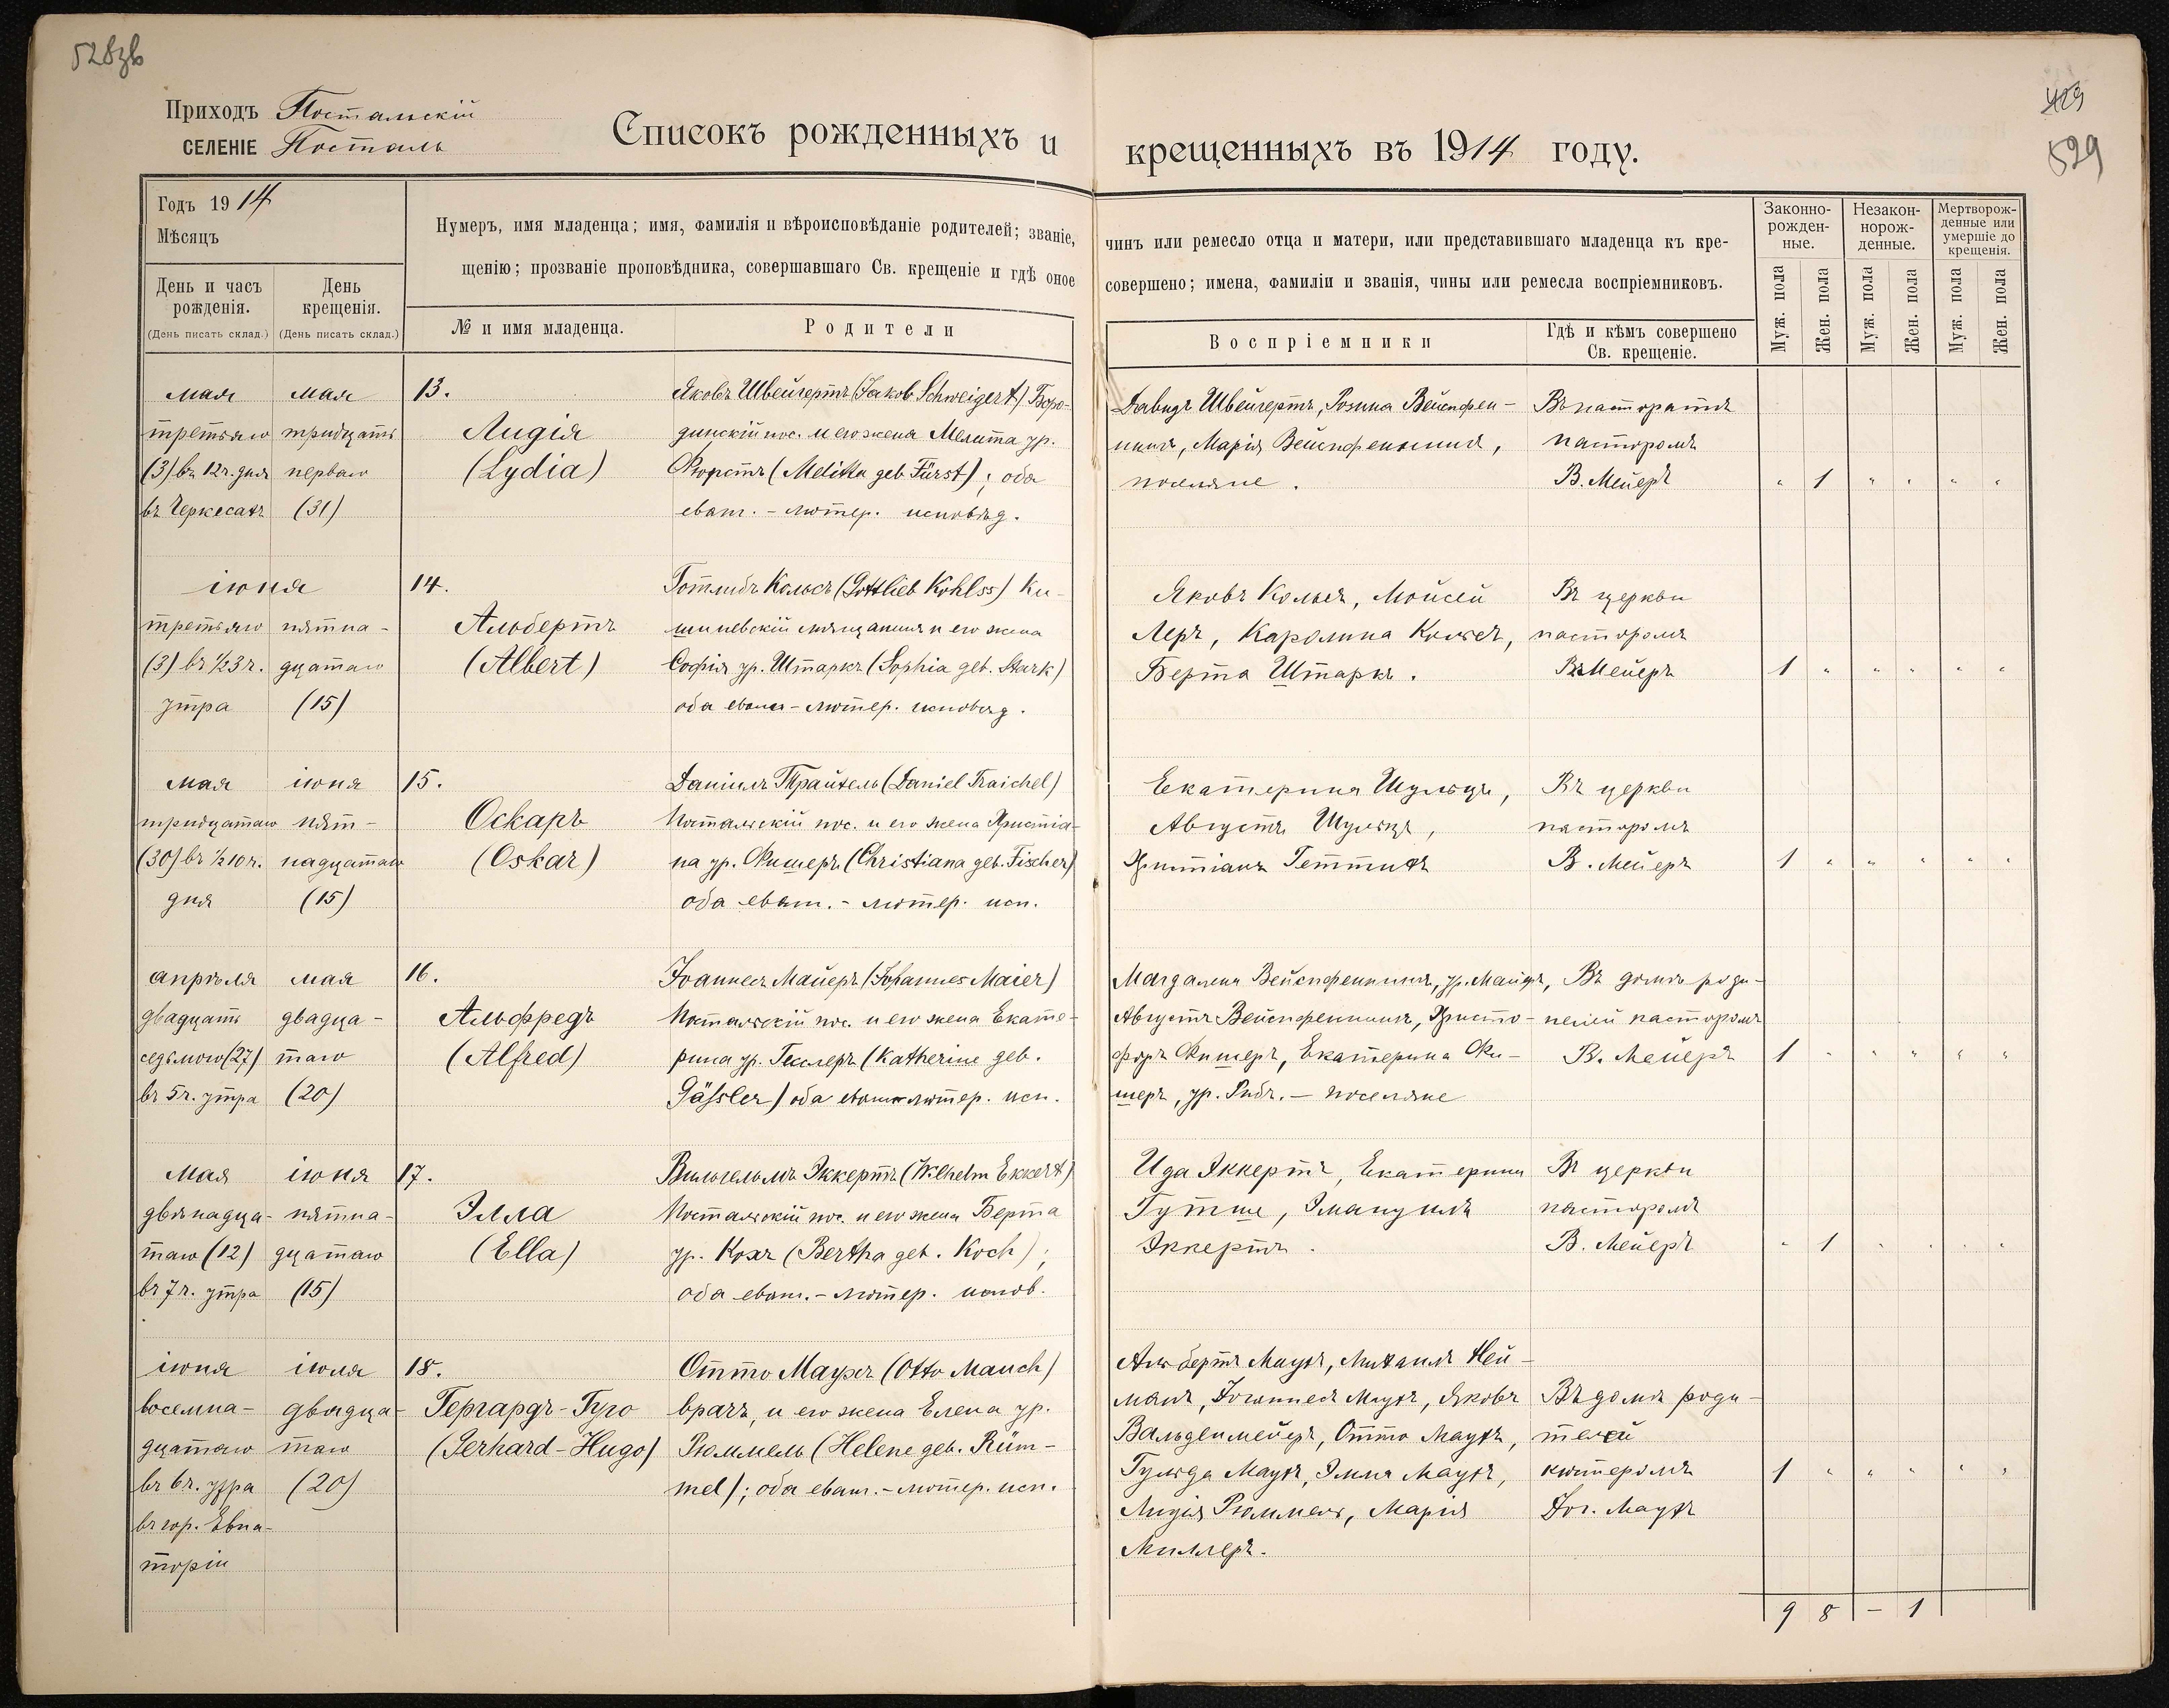 528зв
Приходъ Постальскій
СЕЛЕНІЕ Посталь
Списокъ рожденныхъ и крещенныхъ въ 1914 году.
423
529
Годъ 1914
Мѣсяцъ
Нумеръ, имя младенца; имя, фамилія и вѣроисповѣданіе родителей; званіе, чинъ или ремесло отца и матери, или представившаго младенца къ кре-
щенію; прозваніе проповѣдника, совершавшаго Св. крещеніе и гдѣ оное совершено; имена, фамиліи и званія, чины или ремесла воспріемниковъ.
День и часъ рожденія.
(День писать склад.)
День крещенія.
(День писать склад.)
№ и имя младенца.
Родители
Воспріемники
Гдѣ и кѣмъ совершено
Св. крещеніе.
Законно-
рожден-
ные.
Незакон-
норож-
денные.
Мертворож-
денные или
умершіе до
крещенія.
Муж. пола
Жен. пола
Муж. пола
Жен. пола
Муж. пола
Жен. пола
мая
третьяго
(3) въ 12 ч. дня
въ Черкесахъ
мая
тридцать
перваго
(31)
13.
Лидія
(Lydia)
Яковъ Швейгертъ (Jakob Schweigert) Боро-
динскій пос. и его жена Мелита ур.
Фюрстъ (Melitta geb. Fürst); оба
еванг.-лютер. исповѣд.
Давидъ Швейгертъ, Розина Вейспфен-
нингъ, Марія Вейспфеннингъ,
поселяне.
Въ пасторатѣ
пасторомъ
В. Мейеръ
" 1 " " " "
іюня
третьяго
(3) въ ½3 ч.
утра
пятна-
дцатаго
(15)
14.
Альбертъ
(Albert)
Готлибъ Кольсъ (Gottlieb Kohlss) Ки-
шиневскій мѣщанинъ и его жена
Софія ур. Штаркъ (Sophia geb. Stark)
оба еванг-лютер. исповѣд.
Яковъ Кольсъ, Мойсей
Леръ, Каролина Кольсъ,
Берта Штаркъ.
Въ церкви
пасторомъ
В. Мейеръ
1 " " " " "
мая
тридцатаго
(30) въ ½10 ч.
дня
іюня
пят-
надцатаго
(15)
15.
Оскаръ
(Oskar)
Даніилъ Трайхель (Daniel Traichel)
Постальскій пос. и его жена Христіа-
на ур. Фишеръ (Christiana geb. Fischer)
оба еванг.-лютер. исп.
Екатерина Шульцъ,
Августъ Шульцъ,
Христіанъ Геттихъ
Въ церкви
пасторомъ
В. Мейеръ
1 " " " " "
апрѣля
двадцать
седьмого (27)
въ 5 ч. утра
мая
двадца-
таго
(20)
16.
Альфредъ
(Alfred)
Іоаннесъ Майеръ (Johannes Maier)
Постальскій пос. и его жена Екате-
рина ур. Гесслеръ (Katherine geb.
Gässler) оба еванг-лютер. исп.
Магдалена Вейспфеннингъ, ур. Майеръ,
Августъ Вейспфеннингъ, Христо-
форъ Фишеръ, Екатерина Фи-
шеръ, ур. Рибъ. — поселяне
Въ домѣ роди-
телей пасторомъ
В. Мейеръ
1 " " " " "
мая
двѣнадца-
таго (12)
въ 7 ч. утра
іюня
пятна-
дцатаго
(15)
17.
Элла
(Ella)
Вильгельмъ Эккертъ (Wilhelm Ekkert)
Постальскій пос. и его жена Берта
ур. Кохъ (Bertha geb. Koch);
оба еванг.-лютер. испов.
Ида Эккертъ, Екатерина
Гутше, Эмануилъ
Эккертъ.
Въ церкви
пасторомъ
В. Мейеръ
" 1 " " " "
іюня
восемна-
дцатаго
въ 6 ч. утра
въ гор. Евпа-
торіи
іюля
двадца-
таго
(20)
18.
Гергардъ-Гуго
(Gerhard-Hugo)
Отто Маухъ (Otto Mauch)
врачъ, и его жена Елена ур.
Рюммель (Helene geb. Rüm-
mel); оба еванг.-лютер. исп.
Альбертъ Маухъ, Михаилъ Ней-
манъ, Іоаннесъ Маухъ, Яковъ
Вальденмейеръ, Отто Маухъ,
Гульда Маухъ, Эмма Маухъ,
Лидія Рюммель, Марія
Миллеръ.
Въ домѣ роди-
телей
кюстеромъ
Іог. Маухъ
1 " " " " "
9 8 - 1